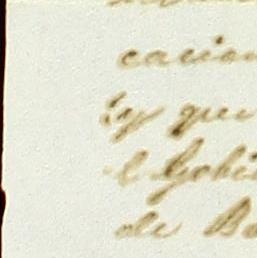 cacion
y que
el Gobi
de Ba